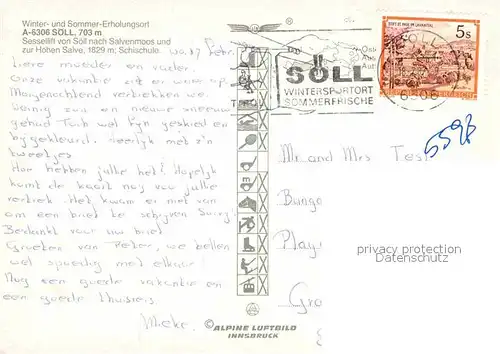 Winter- und Sommer-Erholungsort
A-6306 SÖLL, 703 m
Sessellift von Söll nach Salvenmoos und
zur Hohen Salve, 1829 m; Schischule.
Lieve moeder en vader,
Onze vakantie zit er weer op.
Morgenochtend vertrekken we
weinig zon en nieuwe sneeuw
gehad Toch wel fijn geskied en
bijgekleurd. Heerlijk met z'n
tweetjes
Hoe hebben jullie het? Hopelijk
komt de kaart nog voor jullie
vertrek. Het kwam er niet van
om een brief te schrijven Sorry!
Bedankt voor uw brief.
Groeten van Peter, we bellen
wel spoedig met elkaar!
Nog een goede vakantie en
een goede thuisreis.
Mieke.
SÖLL
WINTERSPORTORT
SOMMERFRISCHE
6306
5 S
5598
Mr and Mrs Test
privacy protection
Datenschutz
© ALPINE LUFTBILD
INNSBRUCK